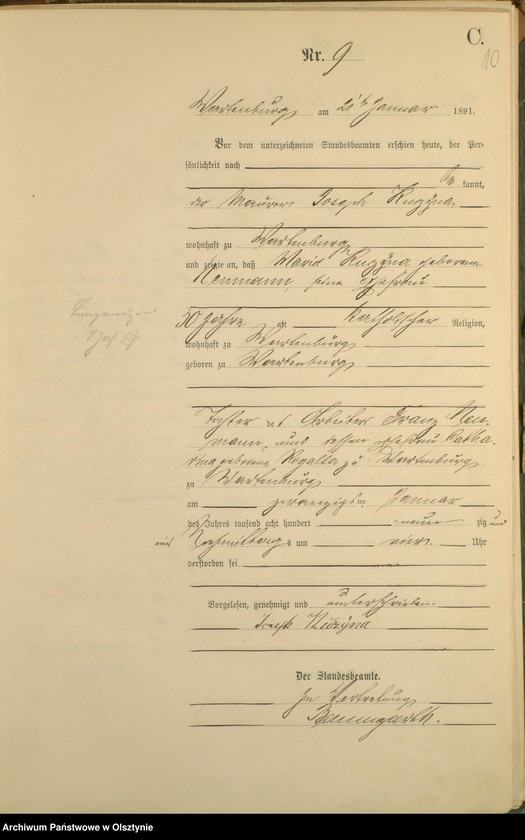 C.
10
Nr. 9
Wartenburg am 21ten Januar 1891.
Vor dem unterzeichneten Standesbeamten erschien heute, der Per-
sönlichkeit nach
be kannt,
der Maurer Joseph
wohnhaft zu Wartenburg
und zeigte an, daß geborene
Neumann, seine Ehefrau
30 Jahre alt, katholischer Religion,
wohnhaft zu Wartenburg
geboren zu Wartenburg
Tochter des Arbeiters Franz Neu-
mann, und dessen Ehefrau Catha-
rina geborene Rogalla zu Wartenburg
zu Wartenburg
am zwanzigsten Januar
des Jahres tausend acht hundert neun zig und
eins Nachmittags um vier Uhr
verstorben sei
Vorgelesen, genehmigt und unterschrieben.
Joseph
Der Standesbeamte.
In Vertretung
Baumgarth.
Archiwum Państwowe w Olsztynie